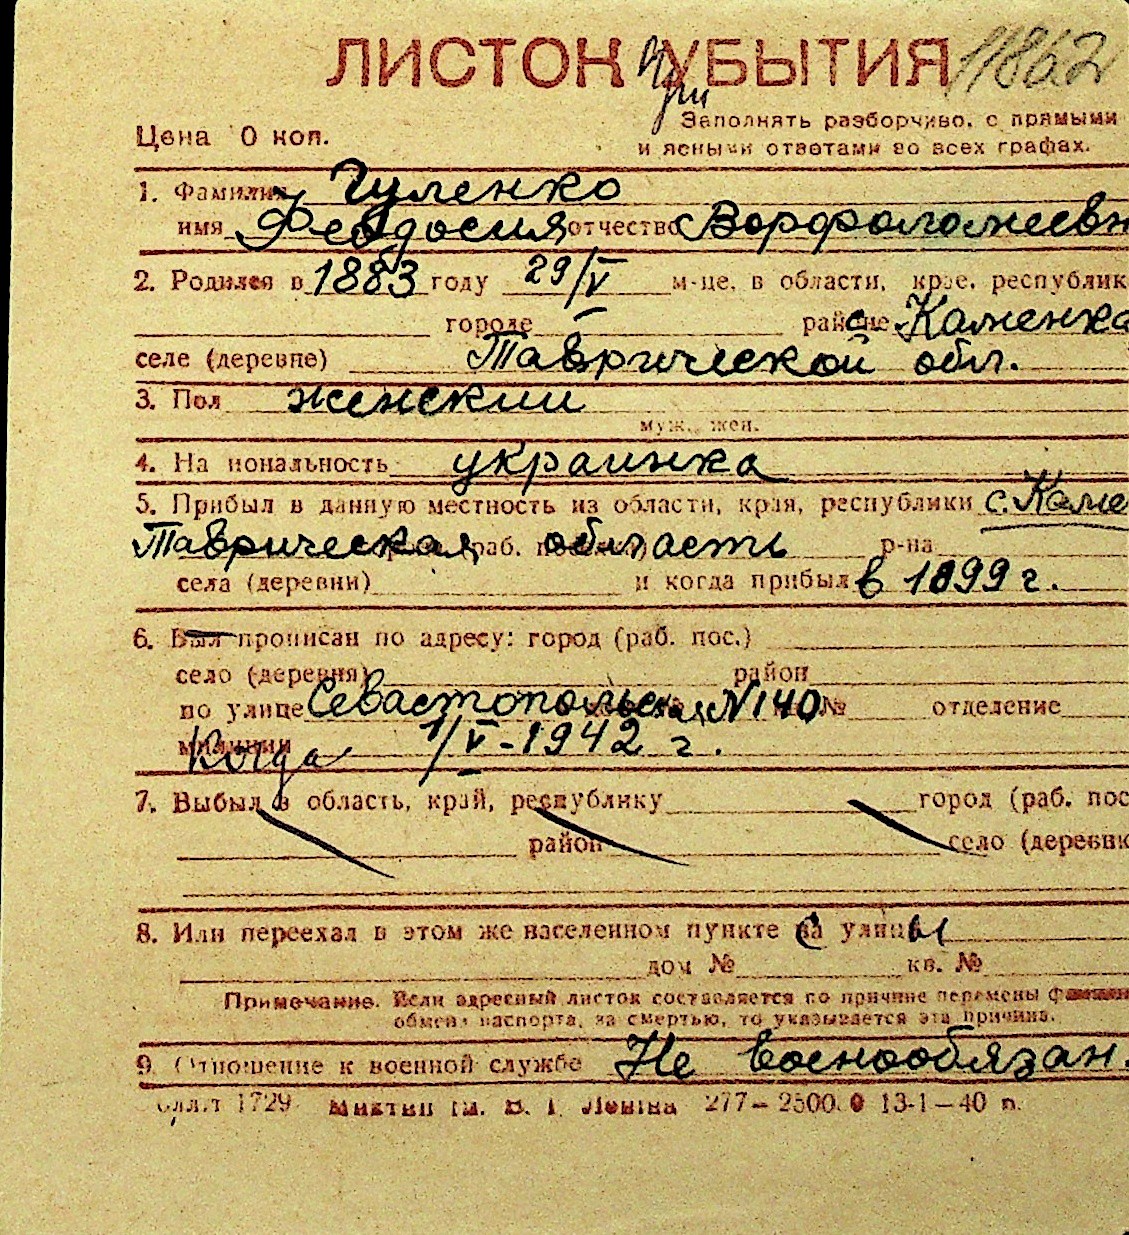 ЛИСТОК при УБЫТИЯ 11862
Цена 0 коп.
Заполнять разборчиво, с прямыми
и ясными ответами во всех графах.
1. Фамилия Гуленко
имя Феодосия отчество Ворфоломеевн
2. Родился в 1883 году 29/V м-це, в области, крае, республик
городе районе с. Каменка
селе (деревне) Таврической обл.
3. Пол женский
муж., жен.
4. Национальность украинка
5. Прибыл в данную местность из области, края, республики с. Каме
Таврическая область (раб. р-на
села (деревни) и когда прибыл в 1899 г.
6. Был прописан по адресу: город (раб. пос.)
село (деревня) район
по улице Севастопольская N140 № отделение
милиции Когда 1/V-1942 г.
7. Выбыл в область, край, республику город (раб. пос
район село (деревню
8. Или переехал в этом же населенном пункте с улицы
дом № кв. №
Примечание. Если адресный листок составляется по причине перемены
обмена паспорта, за смертью, то указывается эта причина.
9. Отношение к военной службе Не военнообязан.
1729 277—2500.0 13-1—40 п.